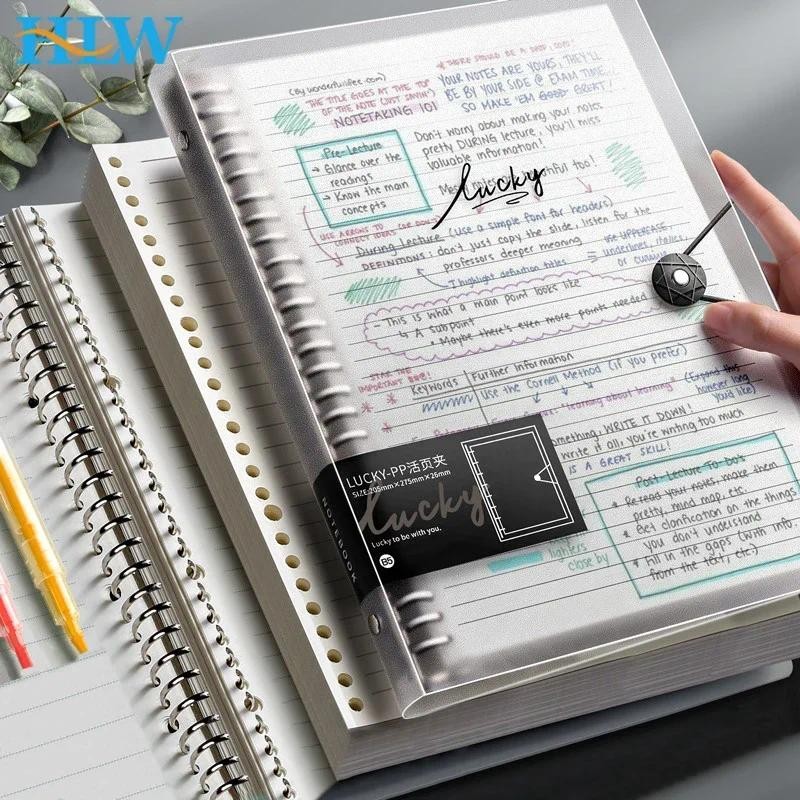 HLW
(By wonderfulifee.com)
THE TITLE GOES AT THE TOP
OF THE NOTE (JUST SAYIN')
NOTETAKING 101
* THERE SHOULD BE A
YOUR NOTES ARE YOURS, THEY'LL
BE BY YOUR SIDE @ EXAM TIME...
SO MAKE 'EM GOOD GREAT!
Pre-Lecture
→ Glance over the
readings
→ Know the main
concepts
Don't worry about making your notes
pretty DURING lecture, you'll miss
valuable information!
too!
lucky
USE ARROWS TO
CONNECT IDEAS
During Lecture (use a simple font for headers)
DEFINITIONS: don't just copy the slide, listen for the
professors deeper meaning
↑ highlight definition titles
= use UPPERCASE,
underlines, italics
or
This is what a main point looks like
↳ A subpoint
• Maybe there's even more points needed
STAR THE
IMPORTANT
Keywords
Further Information
Use the Cornell Method (if you prefer)
"learning about learning"
(Expand this
however long
you'd like)
WRITE IT DOWN!
Write it all, you're writing too much
IS A GREAT SKILL!
NOTEBOOK
LUCKY-PP活页夹
SIZE:205mm×275mm×26mm
lucky
Lucky to be with you.
B5
Post Lecture To-Do's
• Re read your notes, make them
pretty, mind map, etc.
• Get clarification on the things
you don't understand
• Fill in the gaps (with info.
from the text, etc.)
close by